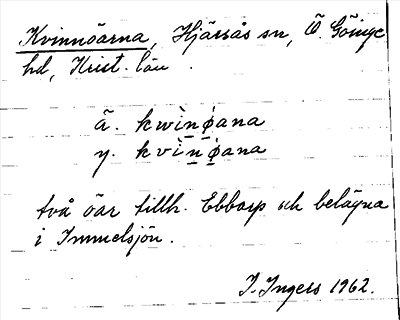 Kvinnöarna, Hjärsås sn, Ö. Göinge
hd, Krist. län.
ä. kwìnøana
y. kvìnøana
två öar tillh. Ebbarp och belägna
i Immelsjön.
I. Ingers 1962.